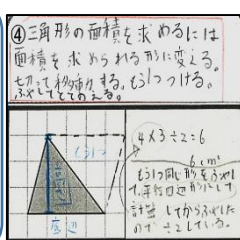 ④三角形の面積を求めるには
面積を求められる形に変える。
切って移動する。もう1つつける。
もう1つ
底辺
4×3÷2=6
6cm²
もう1つ同じ形をふやし
て、平行四辺形にして
計算してからふやした
ので÷2している。